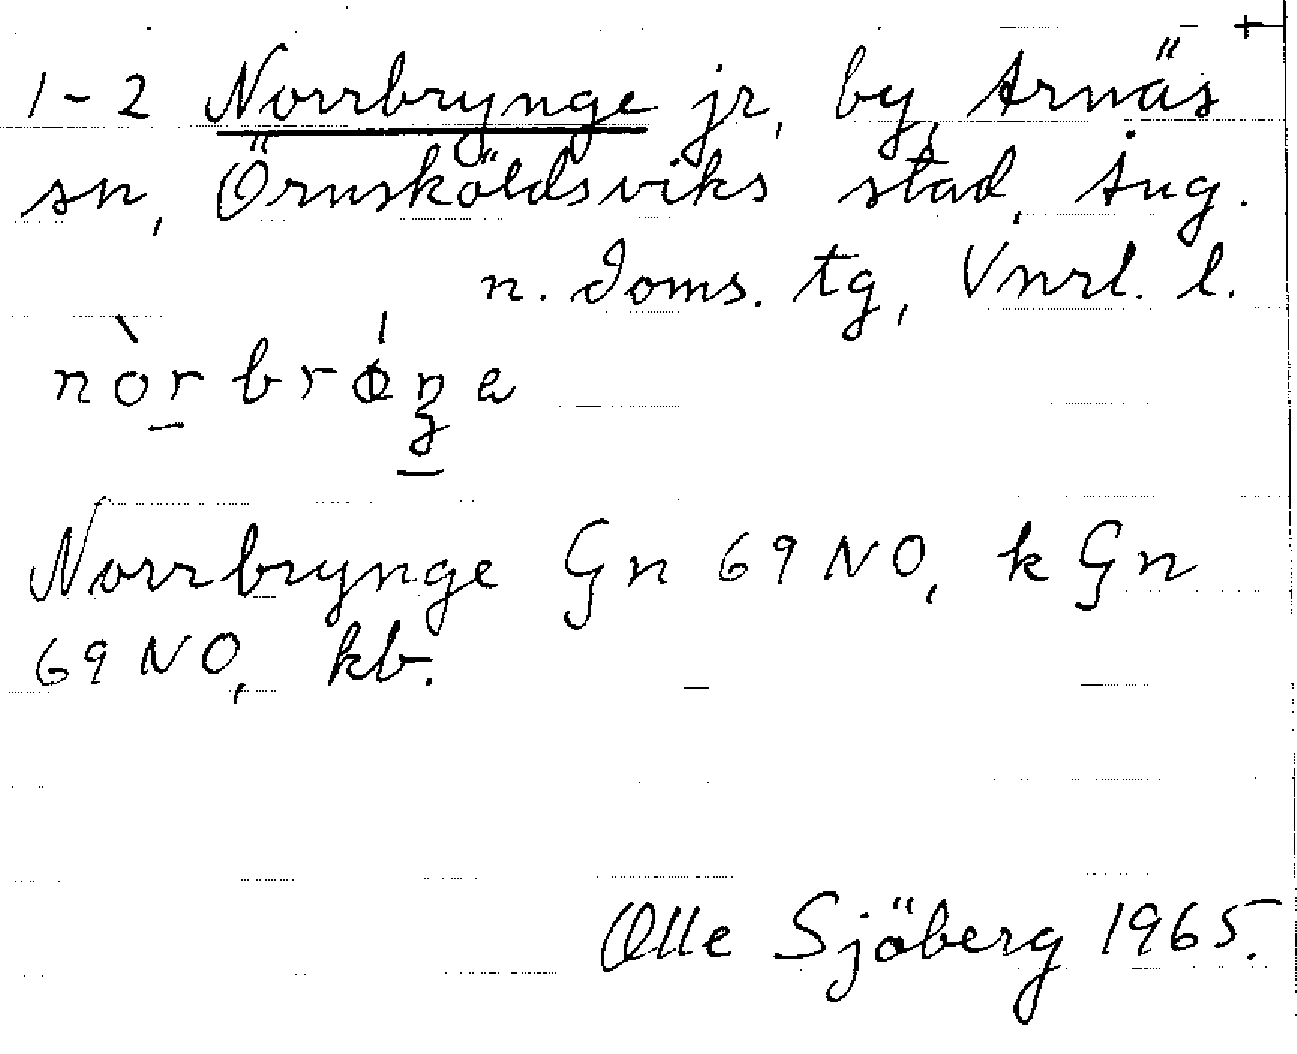 1-2 Norrbrynge jr, by, Arnäs
sn, Örnsköldsviks stad, Ång.
n. doms. tg, Vnrl. l.
Norrbrynge Gn 69 NO, k Gn
69 NO, kb.
Olle Sjöberg 1965.